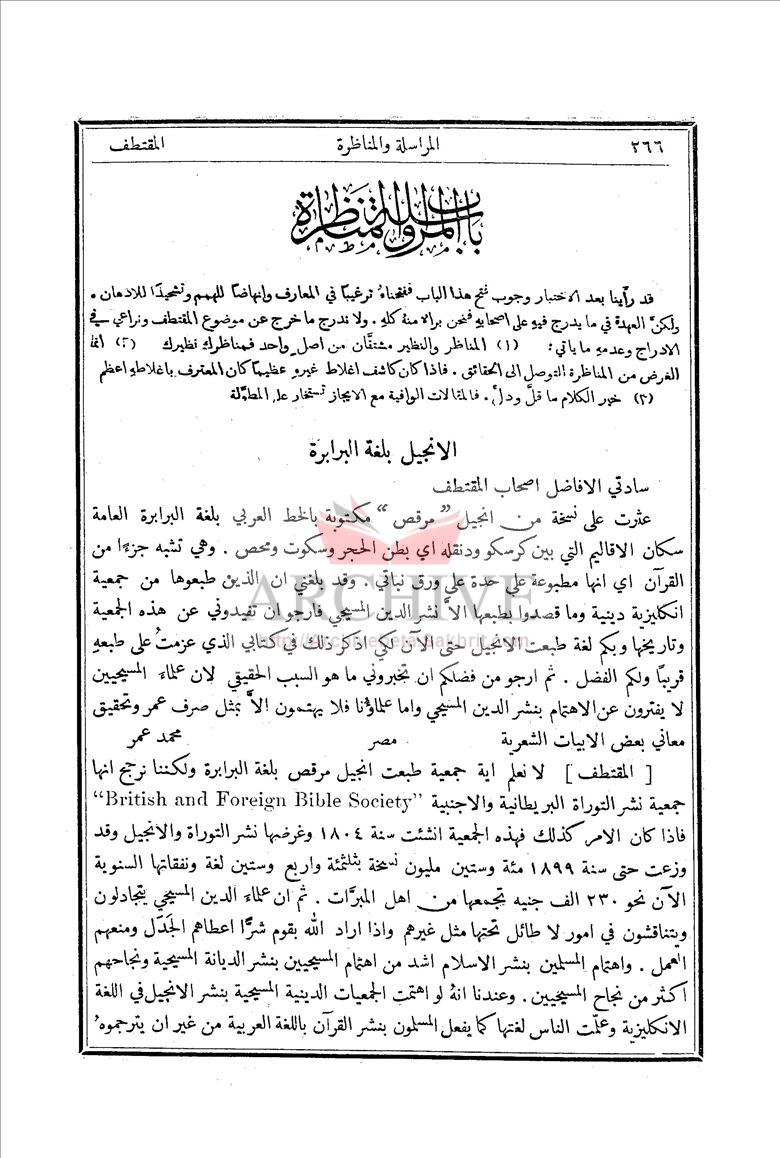 ٢٦٦ المراسلة والمناظرة المقتطف
باب المراسلة والمناظرة
قد رأينا بعد الاختبار وجوب فتح هذا الباب ففتحناهُ ترغيبًا في المعارف وإنهاضًا للهمم وتشحيذًا للاذهان .
ولكنَّ العهدة في ما يدرج فيهِ على اصحابهِ فنحن برالا منهُ كلهِ . ولا ندرج ما خرج عن موضوع المقتطف ونراعي في
الادراج وعدمهِ ما ياتي : (١) المناظر والنظير مشتقَّان من اصل واحد فمناظرك نظيرك (٢) انما
الغرض من المناظرة التوصل الى الحقائق . فاذا كان كاشف اغلاط غيرهِ عظيمًا كان المعترف باغلاطهِ اعظم
(٣) خير الكلام ما قلَّ ودلَّ . فالمقالات الوافية مع الايجاز تستخار على المطوَّلة
الانجيل بلغة البرابرة
سادتي الافاضل اصحاب المقتطف
عثرت على نسخة من انجيل "مرقص" مكتوبة بالخط العربي بلغة البرابرة العامة
سكان الاقاليم التي بين كرسكو ودنقله اي بطن الحجر وسكوت ومحص . وهي تشبه جزءًا من
القرآن اي انها مطبوعة على حدة على ورق نباتي . وقد بلغني ان الذين طبعوها من جمعية
ARCHIVE
انكليزية دينية وما قصدوا بطبعها الاَّ نشر الدين المسيحي فارجو ان تفيدوني عن هذه الجمعية
http://Archivebeta.Sakhrit.com
وتاريخها وبكم لغة طبعت الانجيل حتى الآن لكي اذكر ذلك في كتابي الذي عزمتُ على طبعهِ
قريبًا ولكم الفضل . ثم ارجو من فضلكم ان تخبروني ما هو السبب الحقيقي لان علماء المسيحيين
لا يفترون عن الاهتمام بنشر الدين المسيحي واما علماؤنا فلا يهتمون الاَّ بمثل صرف عمر وتحقيق
معاني بعض الابيات الشعرية مصر محمد عمر
[ المقتطف ] لا نعلم اية جمعية طبعت انجيل مرقص بلغة البرابرة ولكننا نرجح انها
جمعية نشر التوراة البريطانية والاجنبية "British and Foreign Bible Society"
فاذا كان الامر كذلك فهذه الجمعية انشئت سنة ١٨٠٤ وغرضها نشر التوراة والانجيل وقد
وزعت حتى سنة ١٨٩٩ مئة وستين مليون نسخة بثلثمئة واربع وستين لغة ونفقاتها السنوية
الآن نحو ٢٣٠ الف جنيه تجمعها من اهل المبرَّات . ثم ان علماء الدين المسيحي يتجادلون
ويتناقشون في امور لا طائل تحتها مثل غيرهم واذا اراد الله بقوم شرًّا اعطاهم الجَدَل ومنعهم
العمل . واهتمام المسلمين بنشر الاسلام اشد من اهتمام المسيحيين بنشر الديانة المسيحية ونجاحهم
اكثر من نجاح المسيحيين . وعندنا انهُ لو اهتمت الجمعيات الدينية المسيحية بنشر الانجيل في اللغة
الانكليزية وعلَّمت الناس لغتها كما يفعل المسلمون بنشر القرآن باللغة العربية من غير ان يترجموهُ